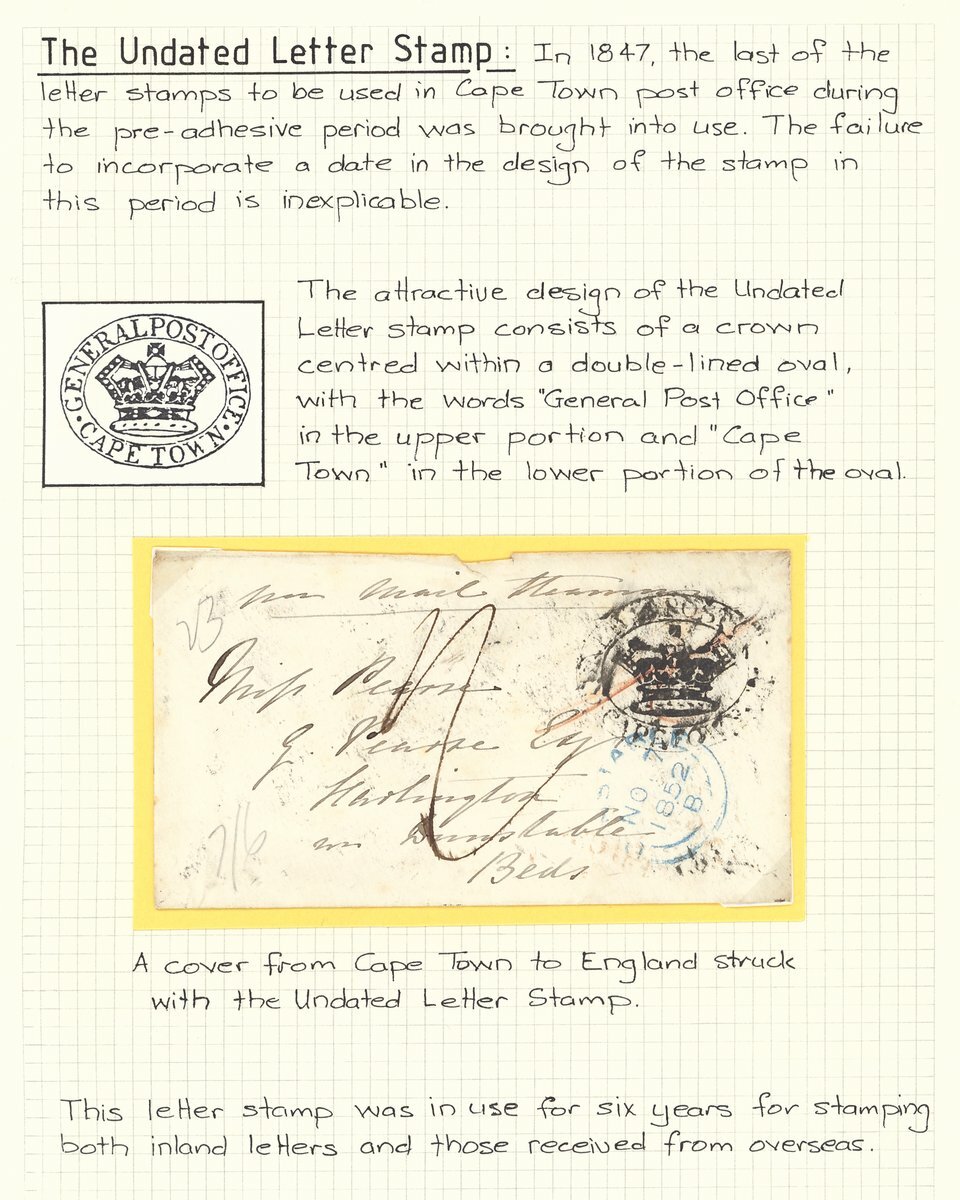 The Undated Letter Stamp: In 1847, the last of the
letter stamps to be used in Cape Town post office during
the pre-adhesive period was brought into use. The failure
to incorporate a date in the design of the stamp in
this period is inexplicable.
The attractive design of the Undated
Letter stamp consists of a crown
centred within a double-lined oval,
with the words "General Post Office"
in the upper portion and "Cape
Town" in the lower portion of the oval.
GENERAL POST OFFICE
CAPE TOWN
per Mail Steamer
Miss Pearse
G. Pearse Esq
Harlington
nr Dunstable
Beds
POST
CAPE TOWN
NO 7
1852
B
2/6
A cover from Cape Town to England struck
with the Undated Letter Stamp.
This letter stamp was in use for six years for stamping
both inland letters and those received from overseas.